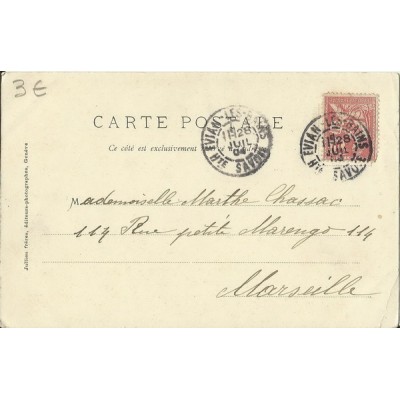 3€
CARTE POSTALE
Ce côté est exclusivement
EVIAN-LES-BAINS
28
JUIL
Hte SAVOIE
EVIAN-LES-BAINS
28
JUIL
Hte SAVOIE
Mademoiselle Marthe Chassac
114 Rue petite Marengo 114
Marseille
Jullien frères, éditeurs-photographes, Genève